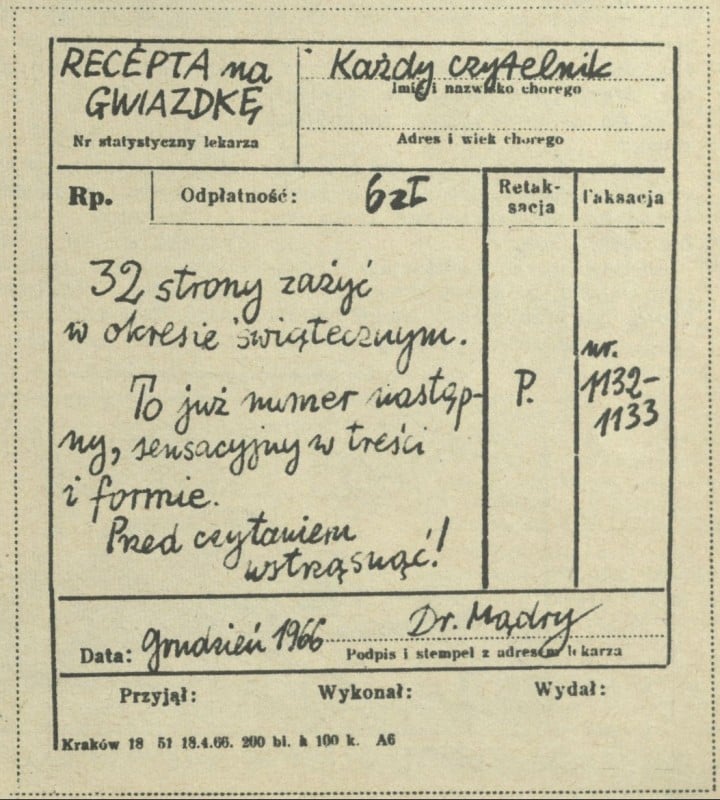 RECEPTA na
GWIAZDKĘ
Nr statystyczny lekarza
Każdy czytelnik
Imię i nazwisko chorego
Adres i wiek chorego
Rp.
Odpłatność: 6 zł
Retak-
sacja
Taksacja
32 strony zażyć
w okresie świątecznym.
To już numer następ-
ny, sensacyjny w treści
i formie.
Przed czytaniem
wstrząsnąć!
P.
nr.
1132-
1133
Data: grudzień 1966
Dr. Mądry
Podpis i stempel z adresem lekarza
Przyjął: Wykonał: Wydał:
Kraków 18 51 18.4.66. 200 bl. à 100 k. A6